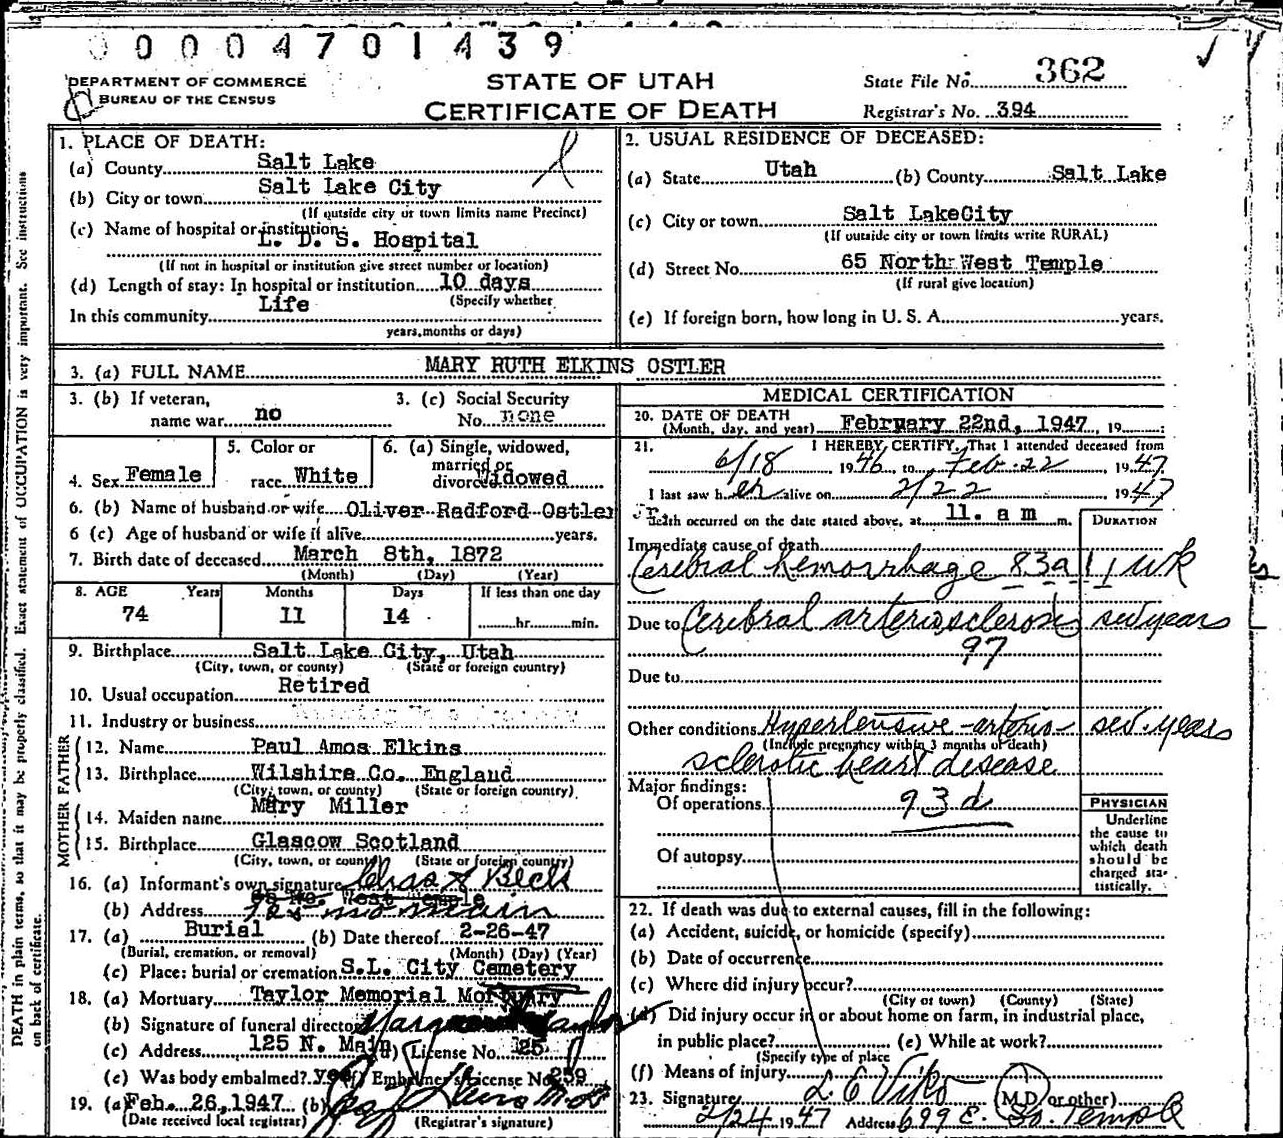 0 0 0 0 4 7 0 1 4 3 9
DEPARTMENT OF COMMERCE
BUREAU OF THE CENSUS
STATE OF UTAH
CERTIFICATE OF DEATH
State File No. 362
Registrar's No. 394
DEATH in plain terms, so that it may be properly classified. Exact statement of OCCUPATION is very important. See instructions
on back of certificate.
1. PLACE OF DEATH:
(a) County Salt Lake
(b) City or town Salt Lake City
(If outside city or town limits name Precinct)
(c) Name of hospital or institution:
L. D. S. Hospital
(If not in hospital or institution give street number or location)
(d) Length of stay: In hospital or institution 10 days
(Specify whether
In this community Life
years, months or days)
2. USUAL RESIDENCE OF DECEASED:
(a) State Utah (b) County Salt Lake
(c) City or town Salt LakeCity
(If outside city or town limits write RURAL)
(d) Street No. 65 North West Temple
(If rural give location)
(e) If foreign born, how long in U. S. A. years.
3. (a) FULL NAME MARY RUTH ELKINS OSTLER
3. (b) If veteran,
name war no
3. (c) Social Security
No. none
4. Sex Female
5. Color or
race White
6. (a) Single, widowed,
married or
divorced Widowed
6. (b) Name of husband or wife Oliver Radford Ostler
Jr.
6 (c) Age of husband or wife if alive years.
7. Birth date of deceased March 8th, 1872
(Month) (Day) (Year)
8. AGE Years Months Days If less than one day
74 11 14 hr. min.
9. Birthplace Salt Lake City, Utah
(City, town, or county) (State or foreign country)
10. Usual occupation Retired
11. Industry or business
FATHER
12. Name Paul Amos Elkins
13. Birthplace Wilshire Co. England
(City, town, or county) (State or foreign country)
MOTHER
14. Maiden name Mary Miller
15. Birthplace Glascow Scotland
(City, town, or county) (State or foreign country)
16. (a) Informant's own signature Chas A Beck
65 No. West Temple
(b) Address no main
17. (a) Burial (b) Date thereof 2-26-47
(Burial, cremation, or removal) (Month) (Day) (Year)
(c) Place: burial or cremation S.L. City Cemetery
18. (a) Mortuary Taylor Memorial Mortuary
(b) Signature of funeral director Taylor
(c) Address 125 N. Main (d) License No. 25
(e) Was body embalmed? yes (f) Embalmer's License No. 259
19. (a) Feb. 26, 1947 (b) M.D.
(Date received local registrar) (Registrar's signature)
MEDICAL CERTIFICATION
20. DATE OF DEATH
(Month, day, and year) February 22nd, 1947, 19
21. I HEREBY CERTIFY, That I attended deceased from
6/18 1946, to Feb. 22, 1947
I last saw her alive on 2/22 1947
death occurred on the date stated above, at 11. a m m.
DURATION
Immediate cause of death
Cerebral hemorrhage 83a 1 wk
Due to Cerebral arteriosclerosis sev years
97
Due to
Other conditions Hypertensive - arterio- sev. years
(Include pregnancy within 3 months of death)
sclerotic heart disease
Major findings:
Of operations 93d
Of autopsy
PHYSICIAN
Underline
the cause to
which death
should be
charged sta-
tistically.
22. If death was due to external causes, fill in the following:
(a) Accident, suicide, or homicide (specify)
(b) Date of occurrence
(c) Where did injury occur?
(City or town) (County) (State)
(d) Did injury occur in or about home on farm, in industrial place,
in public place? (e) While at work?
(Specify type of place
(f) Means of injury
23. Signature L. E. Viko (M.D. or other)
2/24 1947 Address 699 E. So. Temple